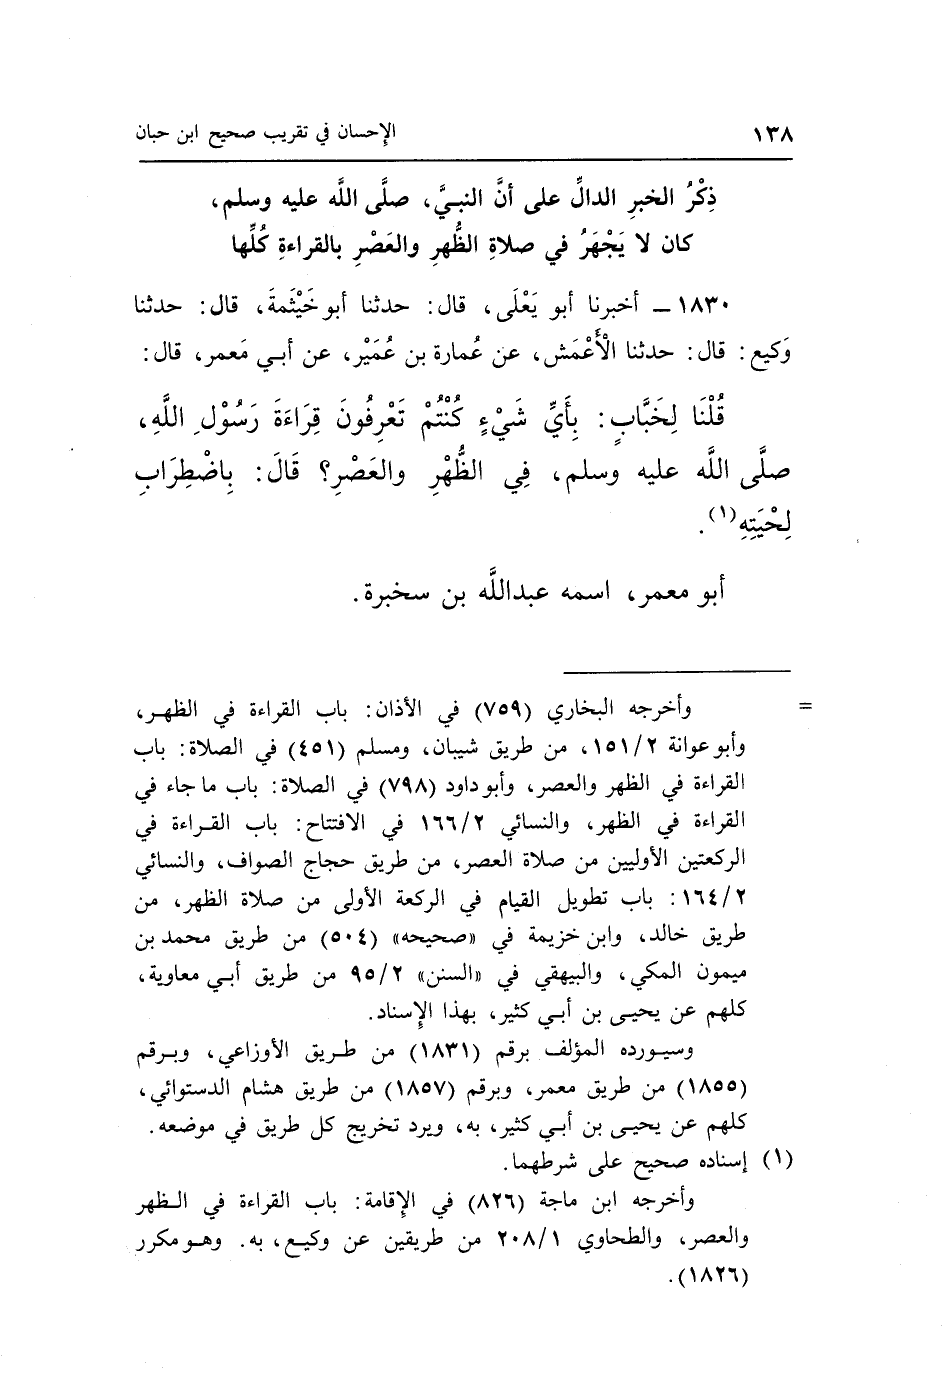 ١٣٨ الإحسان في تقريب صحيح ابن حبان
ذِكْرُ الخبرِ الدالِّ على أنَّ النبيَّ، صلَّى اللَّه عليه وسلم،
كان لا يَجْهَرُ في صلاةِ الظُّهرِ والعَصْرِ بالقراءةِ كُلِّها
١٨٣٠ ـ أخبرنا أبو يَعْلَى، قال: حدثنا أبو خَيْثَمةَ، قال: حدثنا
وَكيع: قال: حدثنا الْأَعْمَش، عن عُمارة بن عُمَيْر، عن أبي مَعمر، قال:
قُلْنَا لِخَبَّابٍ: بِأَيِّ شَيْءٍ كُنْتُمْ تَعْرِفُونَ قِرَاءَةَ رَسُوْلِ اللَّهِ،
صلَّى اللَّه عليه وسلم، فِي الظُّهْرِ والعَصْرِ؟ قَالَ: بِاضْطِرَابِ
لِحْيَتِهِ(١).
أبو معمر، اسمه عبداللَّه بن سخبرة.
= وأخرجه البخاري (٧٥٩) في الأذان: باب القراءة في الظهر،
وأبو عوانة ١٥١/٢، من طريق شيبان، ومسلم (٤٥١) في الصلاة: باب
القراءة في الظهر والعصر، وأبو داود (٧٩٨) في الصلاة: باب ما جاء في
القراءة في الظهر، والنسائي ١٦٦/٢ في الافتتاح: باب القراءة في
الركعتين الأوليين من صلاة العصر، من طريق حجاج الصواف، والنسائي
١٦٤/٢: باب تطويل القيام في الركعة الأولى من صلاة الظهر، من
طريق خالد، وابن خزيمة في «صحيحه» (٥٠٤) من طريق محمد بن
ميمون المكي، والبيهقي في «السنن» ٩٥/٢ من طريق أبي معاوية،
كلهم عن يحيى بن أبي كثير، بهذا الإسناد.
وسيورده المؤلف برقم (١٨٣١) من طريق الأوزاعي، وبرقم
(١٨٥٥) من طريق معمر، وبرقم (١٨٥٧) من طريق هشام الدستوائي،
كلهم عن يحيى بن أبي كثير، به، ويرد تخريج كل طريق في موضعه.
(١) إسناده صحيح على شرطهما.
وأخرجه ابن ماجة (٨٢٦) في الإقامة: باب القراءة في الظهر
والعصر، والطحاوي ٢٠٨/١ من طريقين عن وكيع، به. وهو مكرر
(١٨٢٦).